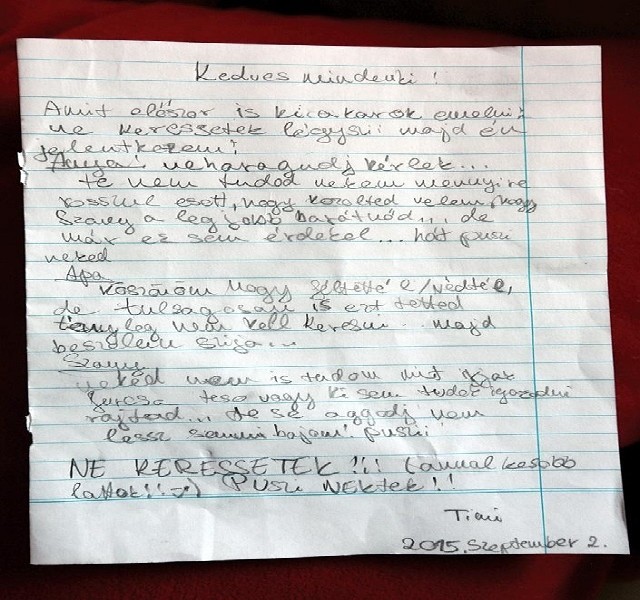 Kedves mindenki!
Amit először is ki akarok emelni:
ne keressetek légyszi majd én
jelentkezem!
Anya! neharagudj kérlek...
te nem tudod nekem mennyire
rosszul esett, hogy közölted velem, hogy
Szany a legjobb barátnőd... de
már ez sem érdekel... hát puszi
neked
Apa
köszönöm hogy féltettél/védtél,
de túlságosan is ezt tetted
tényleg nem kell keresni.. majd
beszélünk szija...
Szany
neked nem is tudom mit
furcsa teso vagy ki sem tudok igazodni
rajtad... de se aggodj nem
lessz semmi bajom! puszi
NE KERESSETEK!!! (annál később
láttok!! ) PUSZI NEKTEK!!
2015. Szeptember 2.